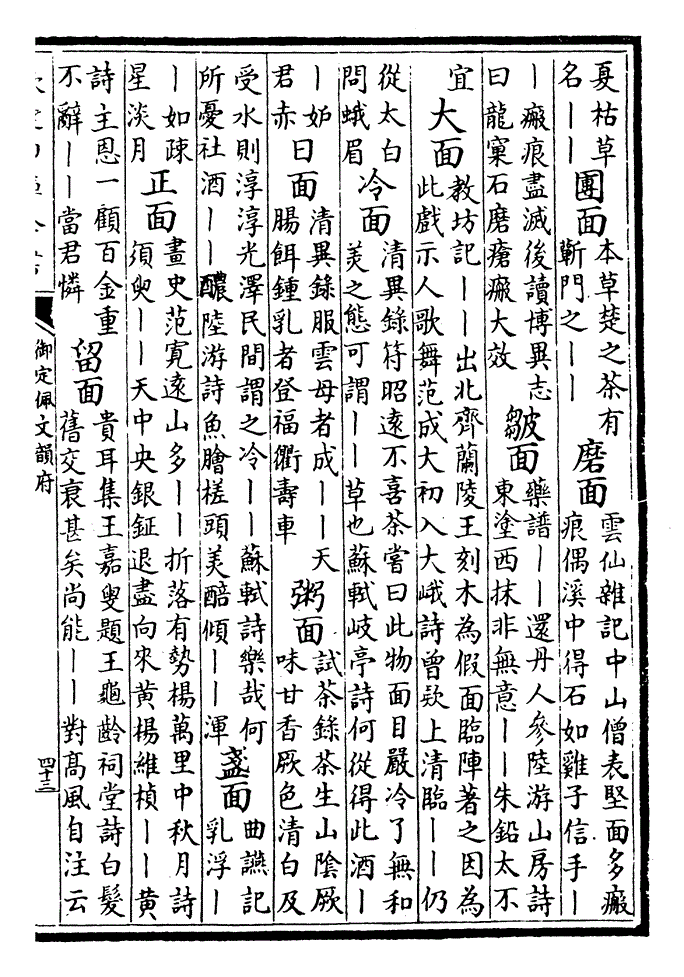 夏枯草
名丨丨
團面
本草楚之茶有
蘄門之丨丨
磨面
雲仙雜記中山僧表堅面多瘢
痕偶溪中得石如雞子信手丨
丨瘢痕盡滅後讀博異志
曰龍窠石磨瘡瘢大效
皺面
藥譜丨丨還丹人參陸游山房詩
東塗西抹非無意丨丨朱鉛太不
宜
大面
教坊記丨丨出北齊蘭陵王刻木為假面臨陣著之因為
此戲示人歌舞范成大初入大峨詩曾欵上清臨丨丨仍
從太白
問蛾眉
冷面
清異錄符昭遠不喜茶嘗曰此物面目嚴冷了無和
美之態可謂丨丨草也蘇軾岐亭詩何從得此酒丨
丨妒
君赤
日面
清異錄服雲母者成丨丨天
腸餌鍾乳者登福衢壽車
粥面
試茶錄茶生山陰厥
味甘香厥色清白及
受水則淳淳光澤民間謂之冷丨丨蘇軾詩樂哉何
所憂社酒丨丨醲陸游詩魚膾槎頭美醅傾丨丨渾
盞面
曲讌記
乳浮丨
丨如疎
星淡月
正面
畫史范寬遠山多丨丨折落有勢楊萬里中秋月詩
須臾丨丨天中央銀鉦退盡向來黃楊維楨丨丨黃
詩主恩一顧百金重
不辭丨丨當君憐
留面
貴耳集王嘉叟題王龜齡祠堂詩白髮
舊交衰甚矣尚能丨丨對高風自注云
御定佩文韻府
四十三